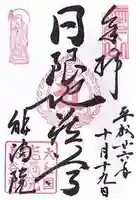 奉拝
平成廿六年
十月十九日
日限地蔵尊
能満院